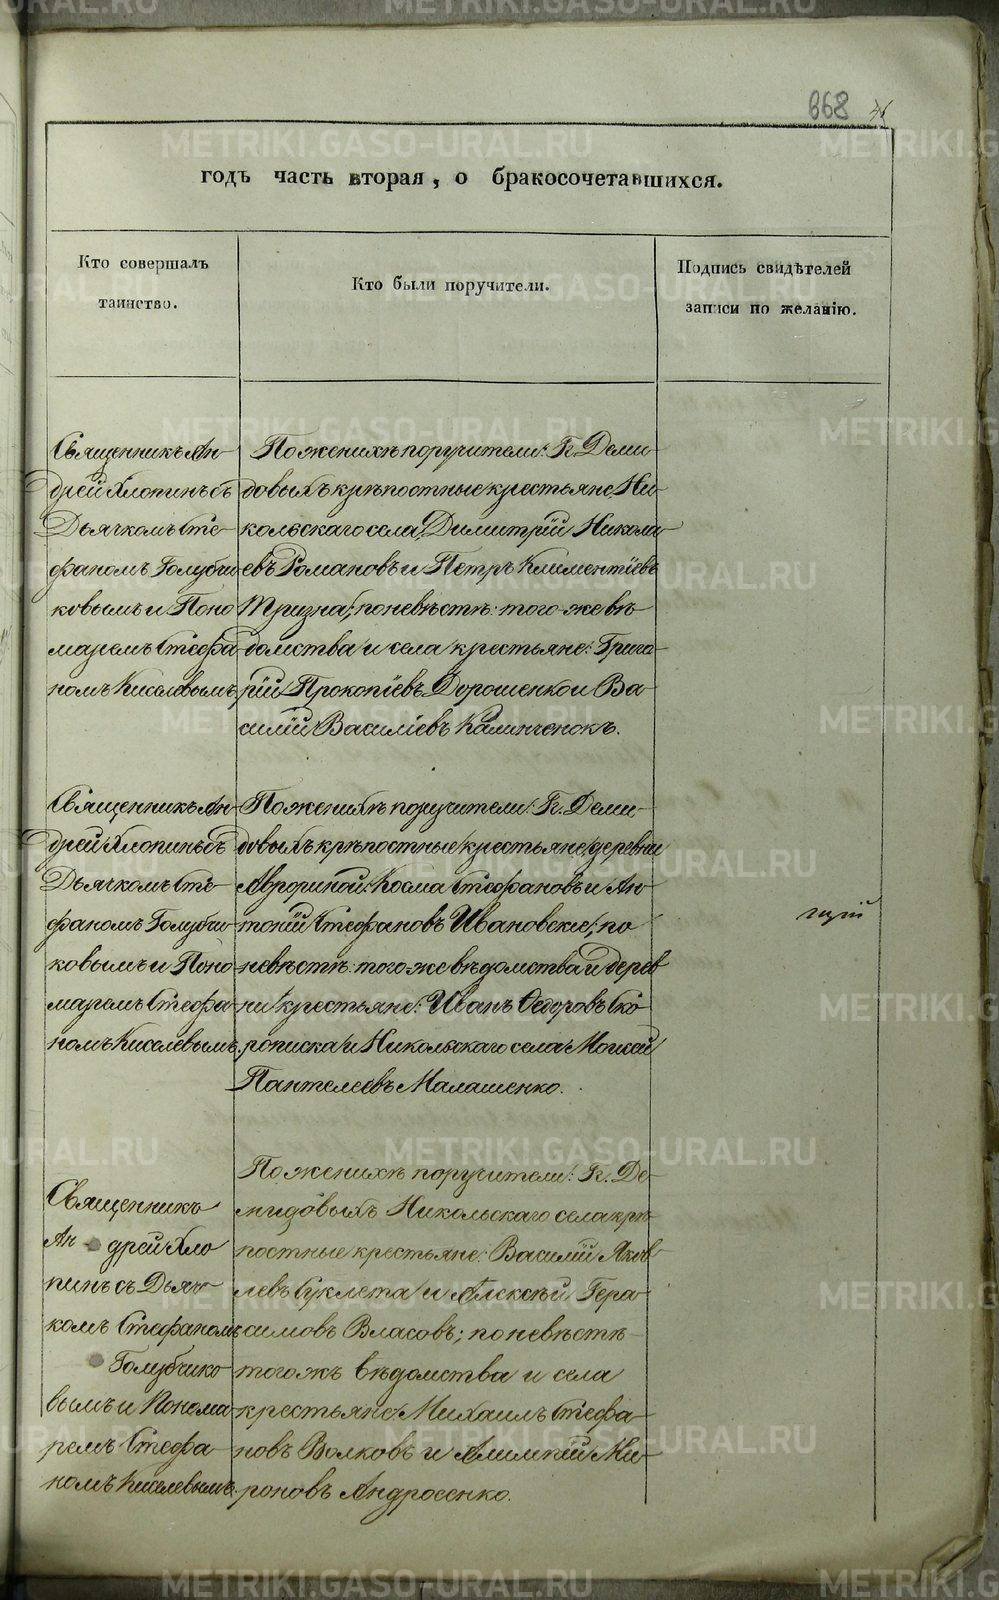 668
годъ часть вторая, о бракосочетавшихся.
Кто совершалъ
таинство.
Кто были поручители.
Подпись свидѣтелей
записи по желанію.
Священникъ Ан-
дрей Хлопинъ съ
Дьячкомъ Сте-
фаномъ Голубчи-
ковымъ и Поно-
маремъ Стефа-
номъ Киселевымъ,
По женихѣ поручители: Гг. Деми-
довыхъ крѣпостные крестьяне, Ни-
кольскаго села, Димитрій Никола-
евъ Романовъ и Петръ Климентіевъ
Тризна; по невѣстѣ: того же вѣ-
домства и села крестьяне: Григо-
рій Прокопіевъ Дорошенко и Ва-
силій Василіевъ Калинченокъ.
Священникъ Ан-
дрей Хлопинъ съ
Дьячкомъ Сте-
фаномъ Голубчи-
ковымъ и Поно-
маремъ Стефа-
номъ Киселевымъ.
По женихѣ поручители: Гг. Деми-
довыхъ крѣпостные крестьяне, деревни
Авророиной: Косма Стефановъ и Ан-
тоній Стефановъ Ивановскіе; по
невѣстѣ: того же вѣдомства и дерев-
ни крестьяне: Иванъ Ѳедоровъ Ско-
рописка и Никольскаго села Моисей
Пантелеевъ Малашенко.
гцій
Священникъ
Ан-дрей Хло-
пинъ съ Дьяч-
комъ Стефаномъ
Голубчико-
вымъ и Понома-
ремъ Стефа-
номъ Киселевымъ.
По женихѣ поручители: Гг. Де-
мидовыхъ Никольскаго села крѣ-
постные крестьяне: Василій Яков-
левъ Суклета и Алексѣй Гера-
симовъ Власовъ; по невѣстѣ-
того жъ вѣдомства и села
крестьяне: Михаилъ Стефа-
новъ Волковъ и Алимпій Ми-
роновъ Андросенко.
METRIKI.GASO-URAL.RU